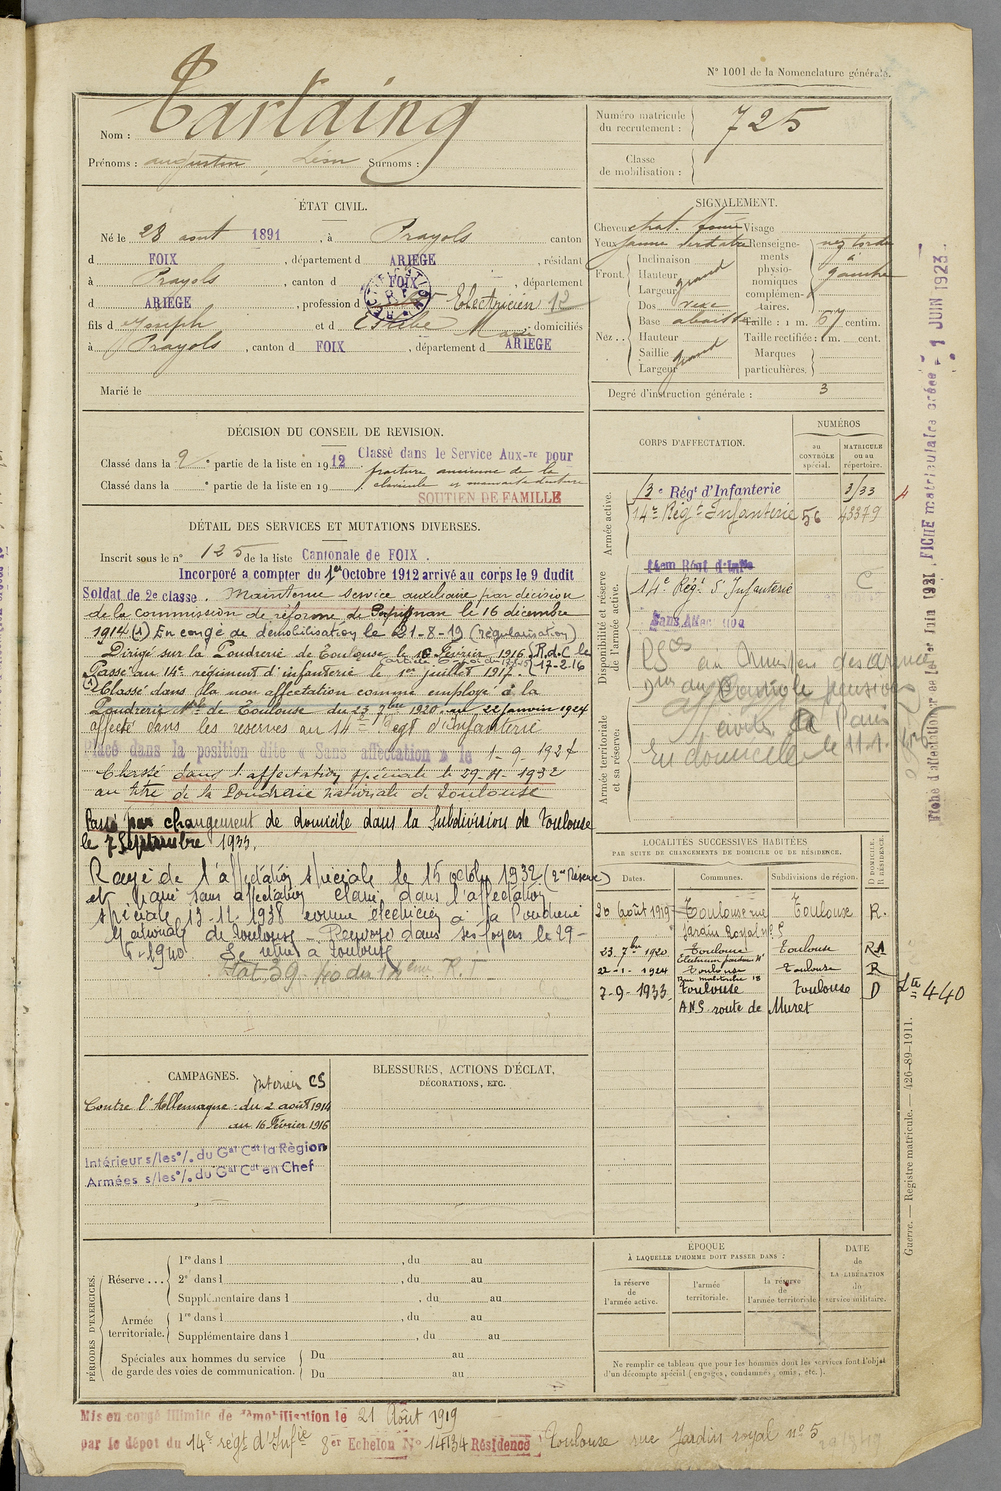 N° 1001 de la Nomenclature générale.
Nom : Tartaing
Prénoms : augustin, Léon Surnoms :
Numéro matricule du recrutement : 725
Classe de mobilisation :
ÉTAT CIVIL.
Né le 28 aout 1891, à Prayols canton
d FOIX, département d ARIEGE, résidant
à Prayols, canton d FOIX, département
d ARIEGE, profession d Electricien 12
fils d Joseph et d Estèbe Marie domiciliés
à Prayols, canton d FOIX, département d ARIEGE
Marié le
SIGNALEMENT.
Cheveux chat. foncé Visage
Yeux jaune verdatre Renseignements physionomiques complémentaires. nez tordu à gauche
Front. Inclinaison
Hauteur grand
Largeur
Nez.. Dos rexe
Base abaissée Taille : 1 m. 67 centim.
Hauteur Taille rectifiée : 1 m. cent.
Saillie grand Marques particulières.
Largeur
Degré d'instruction générale : 3
DÉCISION DU CONSEIL DE REVISION.
Classé dans la 2e partie de la liste en 1912 Classé dans le Service Aux-re pour
fracture ancienne de la
Classé dans la e partie de la liste en 19 clavicule et mauvaise denture
SOUTIEN DE FAMILLE
DÉTAIL DES SERVICES ET MUTATIONS DIVERSES.
Inscrit sous le n° 125 de la liste Cantonale de FOIX.
Incorporé a compter du 1er Octobre 1912 arrivé au corps le 9 dudit
Soldat de 2e classe. Maintenu service auxiliaire par décision
de la Commission de réforme de Perpignan le 16 décembre
1914 (A) En congé de démobilisation le 21-8-19 (régularisation)
Dirigé sur la Poudrerie de Toulouse le 16 Février 1916 (R.d.C le 17-2-16
Passé au 14e régiment d'infanterie le 1er juillet 1917.
(A) Classé dans la non affectation comme employé à la
Poudrerie Nle de Toulouse du 23 7bre 1920 au 22 janvier 1924
affecté dans les reserves au 14e Regt d'Infanterie
Placé dans la position dite « Sans affectation » le 1-9-1927
Classé dans l'affectation spéciale le 29-11-1932
au titre de la Poudrerie nationale de Toulouse
Passé par changement de domicile dans la Subdivision de Toulouse
le 7 Septembre 1933.
Rayé de l'affectation spéciale le 15 octobre 1932 (2me Réserve)
et passé sans affectation Classé dans l'affectation
spéciale 13-11-1938 comme électricien à la Poudrerie
Nationale de Toulouse - Renvoyé dans ses foyers le 29-
Se retire à Toulouse
CORPS D'AFFECTATION.
NUMÉROS
au CONTRÔLE spécial.
MATRICULE ou au répertoire.
Armée active.
Rég' d'Infanterie 3/33
14e Régt Infanterie 56 43379
Disponibilité et réserve de l'armée active.
14em Régt d'Infie
14e Régt d'Infanterie C
Sans Affectation
Armée territoriale et sa réserve.
En domicile
LOCALITÉS SUCCESSIVES HABITÉES
PAR SUITE DE CHANGEMENTS DE DOMICILE OU DE RÉSIDENCE.
Dates. Communes. Subdivisions de région. D DOMICILE. R RÉSIDENCE.
20 Août 1919 Toulouse rue Jardin Royal n° 5 Toulouse R.
23 7bre 1920 Toulouse Toulouse RA
22-1-1924 Toulouse Toulouse R
7-9-1933 Toulouse Toulouse D
A.N.S. route de Muret
Lte 440
CAMPAGNES.
Intérieur CS
Contre l'Allemagne : du 2 août 1914
au 16 Février 1916
Intérieur s/les o/. du Gal Cdt la Règion
Armées s/les o/. du Gal Cdt en Chef
BLESSURES, ACTIONS D'ÉCLAT,
DÉCORATIONS, ETC.
PÉRIODES D'EXERCICES.
Réserve... 1re dans l , du au
2e dans l , du au
Supplémentaire dans l , du au
Armée territoriale. 1re dans l , du au
Supplémentaire dans l , du au
Spéciales aux hommes du service de garde des voies de communication. Du au
Du au
EPOQUE
À LAQUELLE L'HOMME DOIT PASSER DANS :
la réserve de l'armée active.
l'armée territoriale.
la réserve de l'armée territoriale
DATE de LA LIBÉRATION du service militaire.
Ne remplir ce tableau que pour les hommes dont les services font l'objet
d'un décompte spécial (engagés, condamnés, omis, etc.).
Guerre. — Registre matricule. — 426-89-1911.
FICHE matriculaire créée le 1 JUIN 1923
Mis en congé illimité de démobilisation le 21 Août 1919
par le dépot du 14e régt d'Infie 8er Echelon No 14134 Résidence Toulouse rue Jardin royal n° 5